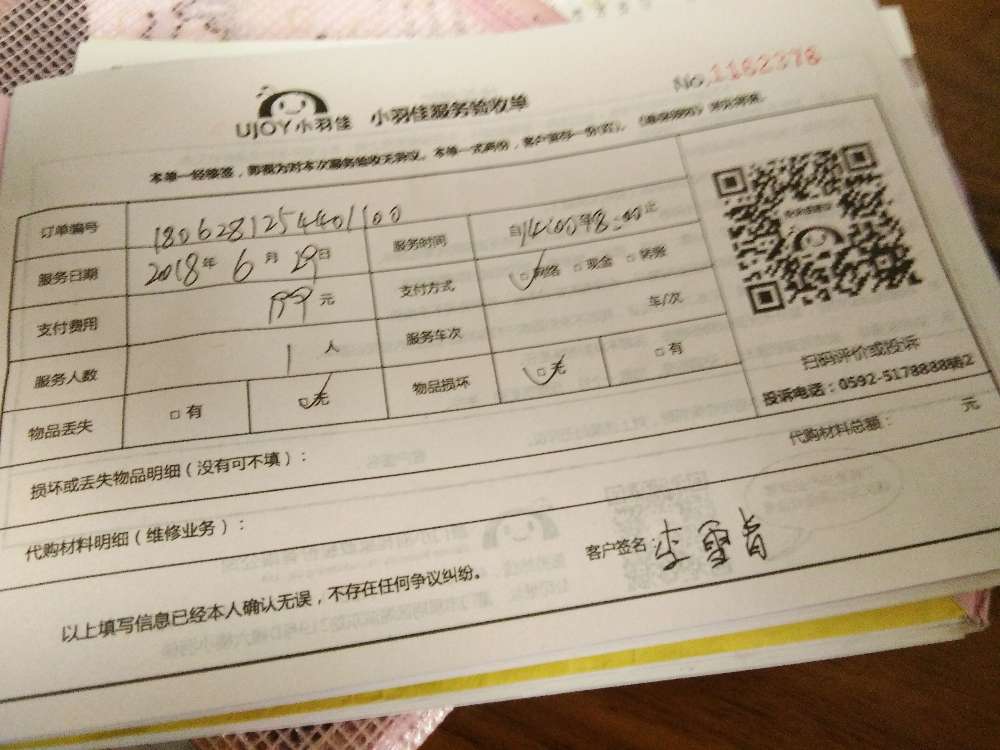 No.1162378
UJOY小羽佳 小羽佳服务验收单
本单一经修签，即视为对本次服务验收无异议。本单一式两份，客户留存一份(页)。
订单编号 1806281254401100
服务日期 2018年6月29日 服务时间 自14:00至18:00止
支付费用 199元 支付方式 □网络 □现金 □转账
服务人数 1人 服务车次 车/次
物品丢失 □有 □无 物品损坏 □无 □有
扫码评价或投诉
投诉电话：0592-5178888转2
损坏或丢失物品明细（没有可不填）：
代购材料明细（维修业务）： 代购材料总额： 元
以上填写信息已经本人确认无误，不存在任何争议纠纷。 客户签名：李雪青